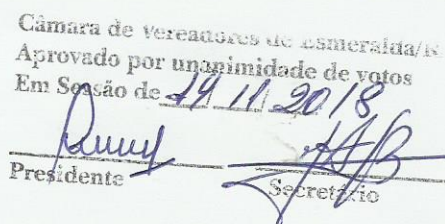 Câmara de Vereadores de Esmeralda/R
Aprovado por unanimidade de votos
Em Sessão de 19 11 2018
Presidente
Secretário